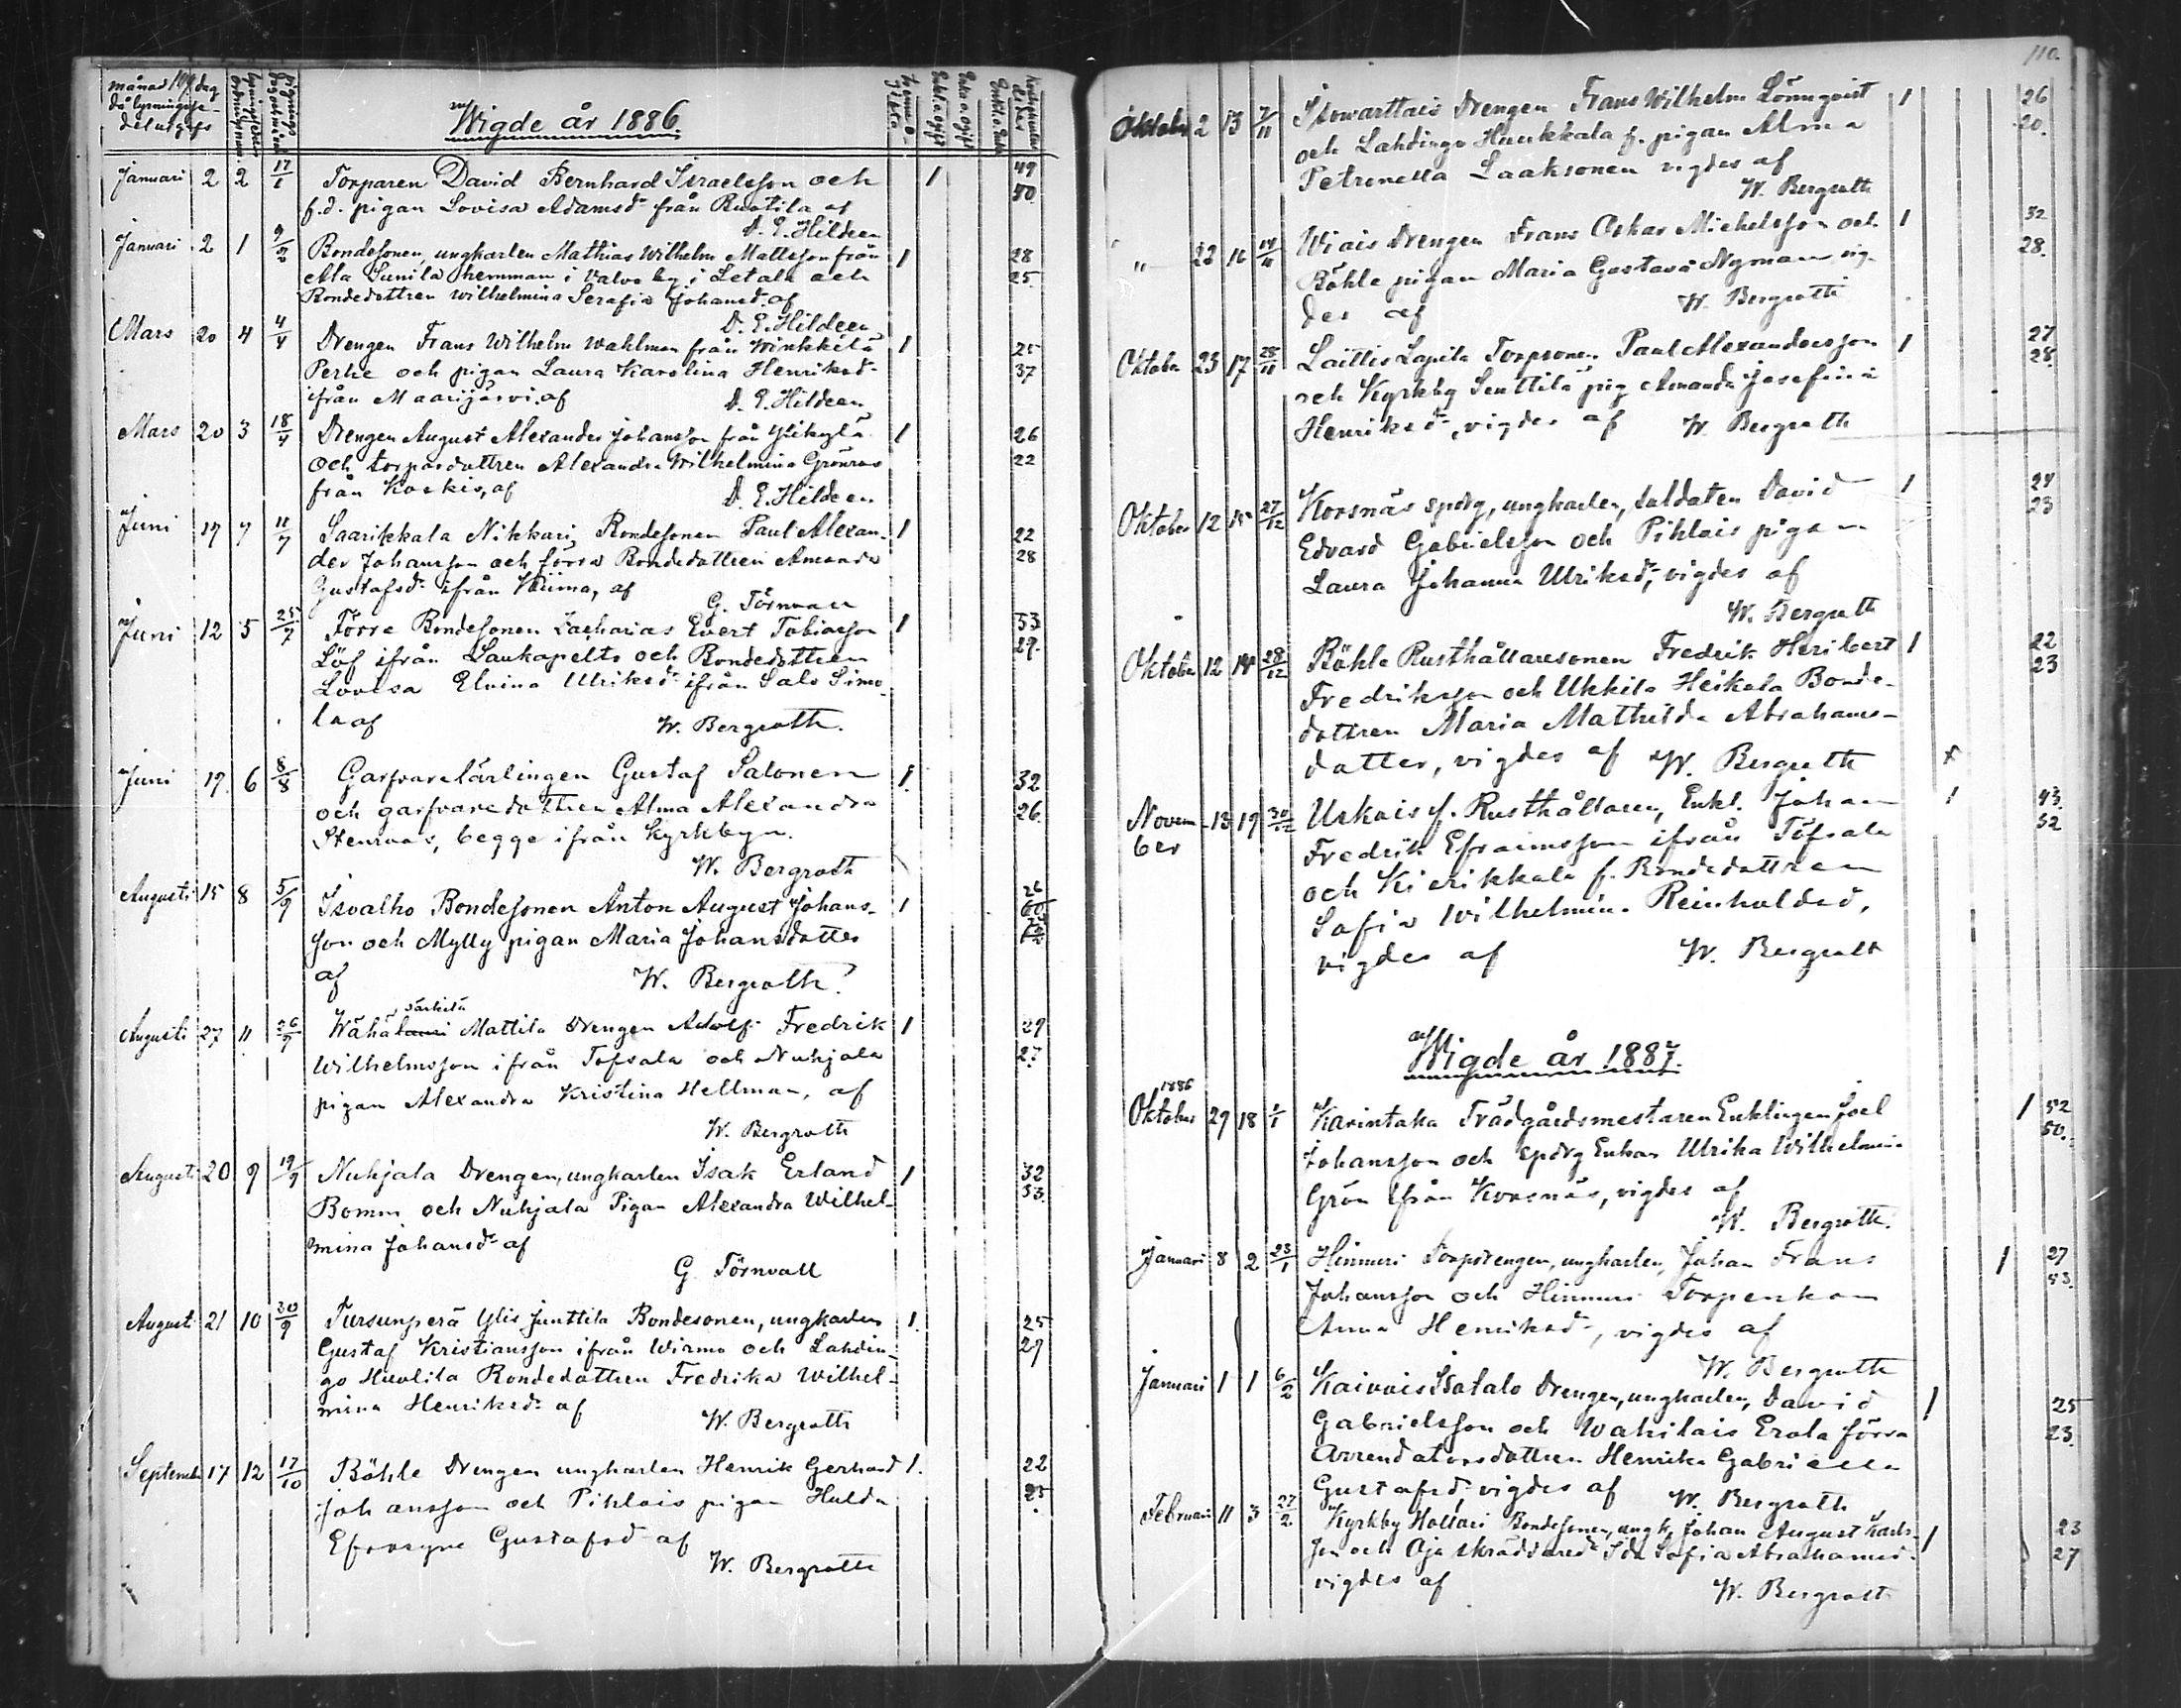 månad och dag
då lysningsse-
del utgifs
Wigde år 1886
Januari 2 2 17/1 Torparen David Bernhard Israelsson och 1 49
f.d. pigan Lovisa Adamsd. från Ruotila af 40
D. E. Hildeen
Januari 2 1 9/2 Bondesonen, ungkarlen Mathias Wilhelm Mattsson från 1 28
Ala Sunila hemman i Valvo by i Letala och 25
Bondedottren Wilhelmina Serafia Johansd. af
D. E. Hildeen
Mars 20 4 4/4 Drengen Frans Wilhelm Wahlman från Winkkilä 1 25
Perhe och pigan Laura Karolina Henriksd. 37
ifrån Maarijärvi af D. E. Hildeen
Mars 20 3 18/4 Drengen August Alexander Johansson från Ylikylä 1 26
och torparedottren Alexandra Wilhelmina Grönroos 22
från Koskis, af D. E. Hildeen
Juni 19 7 11/7 Saarikkala Nikkari, Bondesonen Paul Alexan- 1 22
der Johansson och förra Bondedottren Amanda 28
Gustafsd. ifrån Kiima, af G. Törnvall
Juni 12 5 25/7 Förre Bondesonen Zacharias Evert Tobiasson 1 33
Löf ifrån Laukapelto och Bondedottren 29.
Lovisa Elvina Ulriksd. ifrån Salo Simo-
la af W. Bergroth.
Juni 19. 6 8/8 Garfvarelärlingen Gustaf Salonen 1. 32
och garfvaredottren Alma Alexandra 26.
Stenroos, begge ifrån Kyrkbyn.
W. Bergroth
Augusti 15 8 5/9 Isvalho Bondesonen Anton August Johans- 1 26
son och Mylly pigan Maria Johansdotter
af W. Bergroth.
särkilä
Augusti 27 11 26/9 Wähä Mattila Drengen Adolf Fredrik 1 29
Wilhelmsson ifrån Töfsala och Nuhjala 27.
pigan Alexandra Kristina Hellman, af
W. Bergroth
Augusti 20 9 19/9 Nuhjala Drengen, ungkarlen Isak Erland 1 32
Bomm och Nuhjala Pigan Alexandra Wilhel- 33.
mina Johansd. af
G. Törnvall
Augusti 21 10 30/9 Tursunperä Ylis Junttila Bondesonen, ungkarlen 1. 25
Gustaf Kristiansson ifrån Wirmo och Lahdin- 29
go Hivolita Bondedottren Fredrika Wilhel-
mina Henriksd. af
W. Bergroth
September 17 12 17/10 Böhle Drengen ungkarlen Henrik Gerhard 1. 22
Johansson och Pihlais pigan Hulda 25
Efrosyne Gustafsd. af
W. Bergroth
110.
Oktober 2 13 7/11 Drengen Frans Wilhelm Lönnqvist 1 26
och Lahdingo Huukkala f. pigan Alma 20.
Petronella Laaksonen vigdes af
W. Bergroth
" 22 16 14/11 Wiais Drengen Frans Oskar Michelsson och 1 32
Böhle pigan Maria Gustava Nyman, vig- 28.
des af W. Bergroth
Oktober 23 17 28/11 Laittis Lapila Torpsonen Paul Alexandersson 1 27
och Kyrkby Senttilä pig Amanda Josefina 28.
Henriksd., vigdes af W. Bergroth
Oktober 12 15 27/12 Korsnäs spdrg, ungkarlen, soldaten David 1 24
Edvard Gabrielsson och Pihlais pigan 23
Laura Johanna Ulriksd., vigdes af
W. Bergroth
Oktober 12 14 28/12 Böhle Rusthållaresonen Fredrik Heribert 1 22
Fredriksson och Ukkila Heikola Bonde- 23
dottren Maria Mathilda Abrahams-
dotter, vigdes af W. Bergroth x
Novem- 13 19 30/12 Urkais f. Rusthållaren, Enkl. Johan 1 43.
ber Fredrik Efraimsson ifrån Töfsala 32
och Kierikkala f. Bondedottren
Sofia Wilhelmina Reinholdsd.,
vigdes af W. Bergroth
Wigde år 1887.
1886
Oktober 29 18 Karintaka Trädgårdsmestaren Enklingen Joel 1 52
Johansson och spdrg Enkan Ulrika Wilhelmina 50.
Grön ifrån Korsnäs, vigdes af
W. Bergroth.
Januari 8 2 23/1 Hinnuri Torpdrengen, ungkarlen, Johan Frans 1 27
Johansson och Hinnuri Torpenkan 53.
Anna Henriksd., vigdes af
W. Bergroth
Januari 1 1 6/2 Kaivois Isotalo Drengen, ungkarlen, David 1 25
Gabrielsson och Wahilais Erola förra 23.
Arrendatorsdottren Henrika Gabriella
Gustafsd. vigdes af W. Bergroth
Februari 11 3 27/2 Kyrkby Hollari Bondesonen, ungk. Johan August Karls- 1 23
son och Oja skräddared. Ida Sofia Abrahamsd. 27
vigdes af W. Bergroth